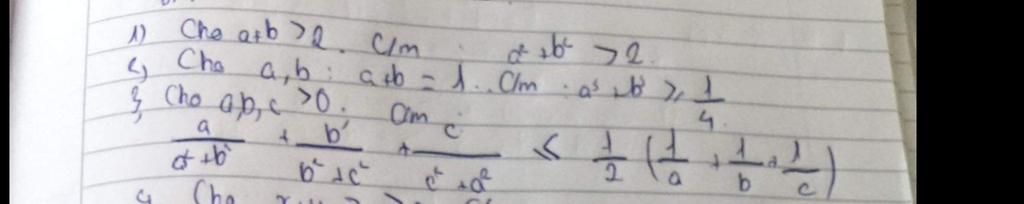 1) Cho a+b > 2. C/m a² + b² > 2.
2) Cho a, b : a+b = 1. C/m : a³ + b³ ≥ 1/4
3) Cho a, b, c > 0. C/m
a/(a²+b²) + b/(b²+c²) + c/(c²+a²) ≤ 1/2 (1/a + 1/b + 1/c)
4) Cho